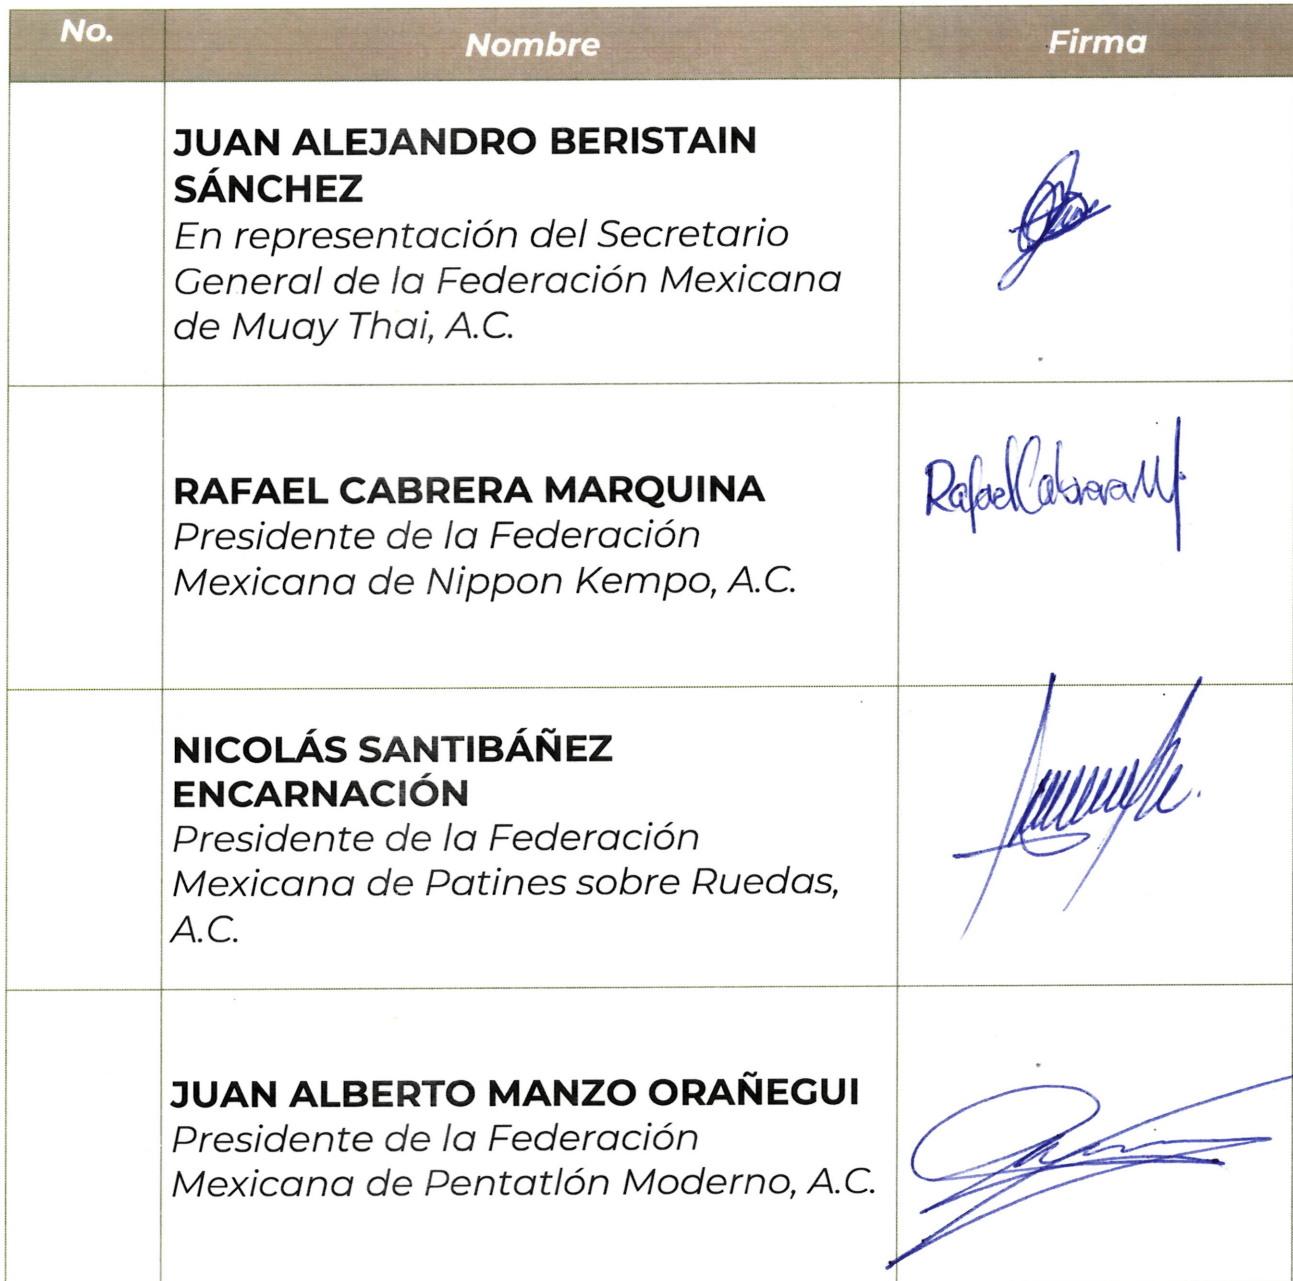 No. Nombre Firma
JUAN ALEJANDRO BERISTAIN
SÁNCHEZ
En representación del Secretario
General de la Federación Mexicana
de Muay Thai, A.C.
RAFAEL CABRERA MARQUINA
Presidente de la Federación
Mexicana de Nippon Kempo, A.C.
Rafael Cabrera M.
NICOLÁS SANTIBÁÑEZ
ENCARNACIÓN
Presidente de la Federación
Mexicana de Patines sobre Ruedas,
A.C.
JUAN ALBERTO MANZO ORAÑEGUI
Presidente de la Federación
Mexicana de Pentatlón Moderno, A.C.